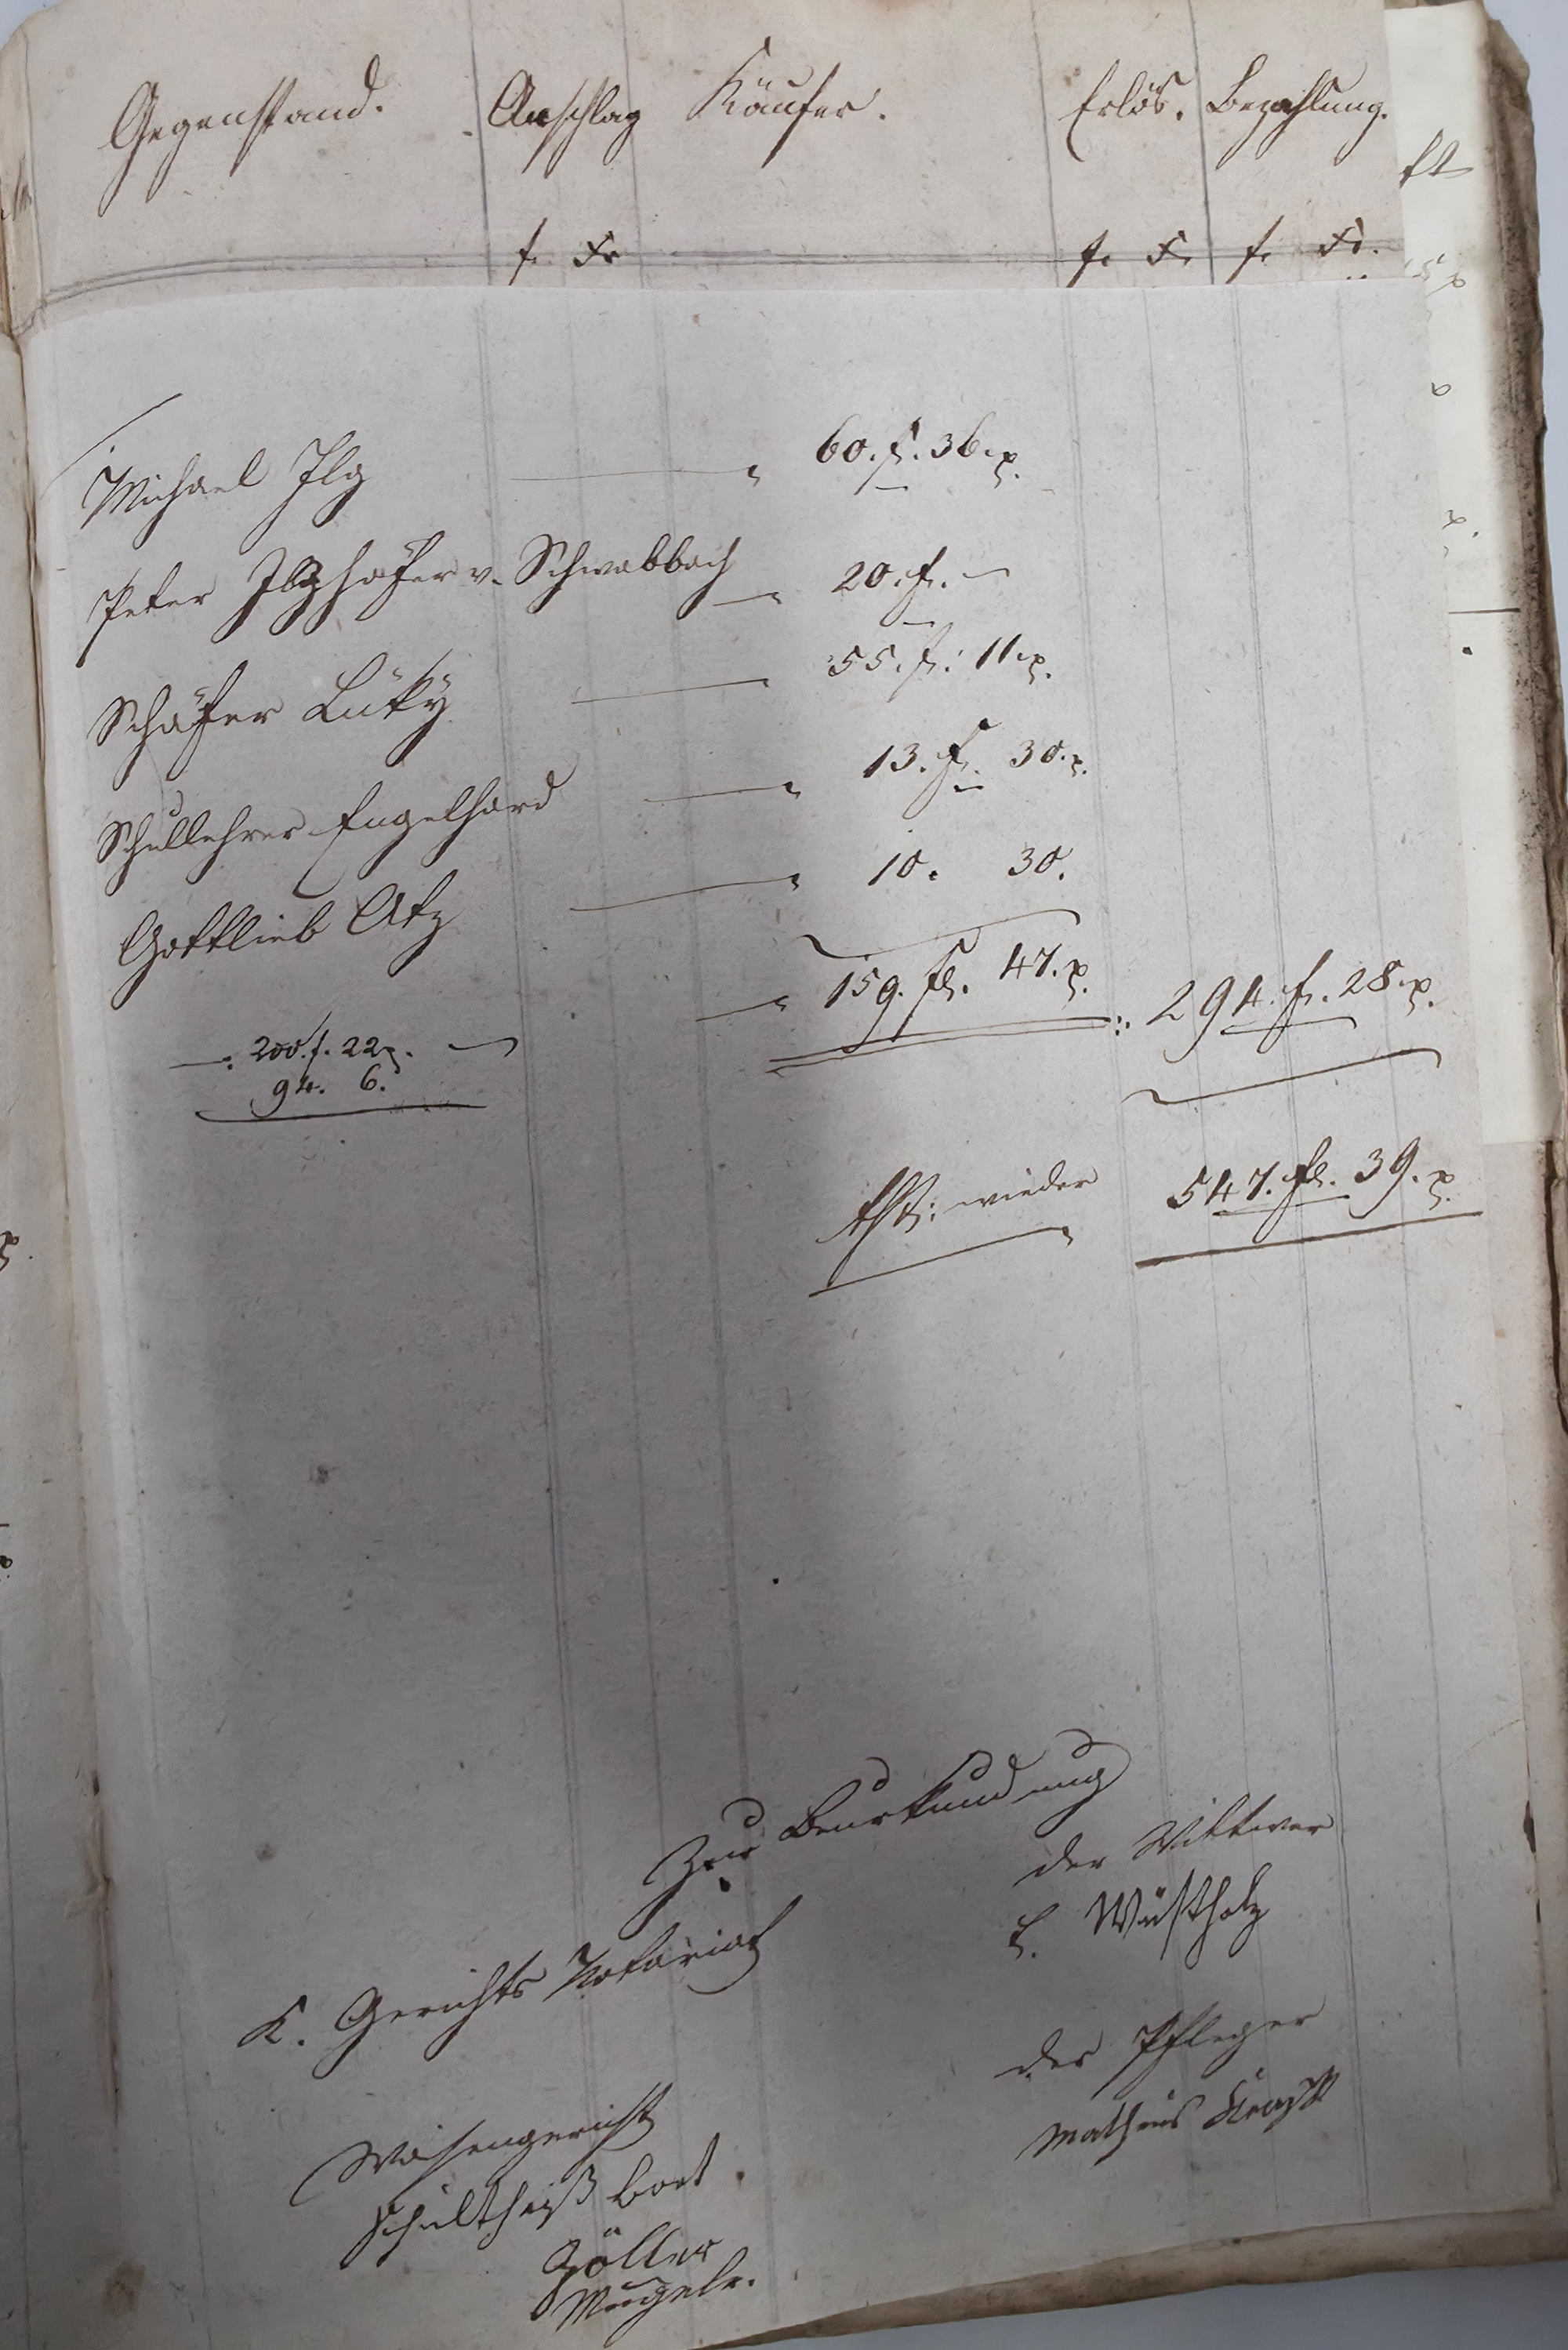 Gegenstand. Anschlag Käufer. Erlös. Bezahlung.
f. Kr f. K. f. Kr.
Michael Ilg 60. f. 36 x.
Peter v. Schwabbach 20. f. —
Schäfer Lüky 55. f. 11 x.
Schullehrer Engelhard 13. f. 30. x.
Gottlieb Atz 10. 30.
159. fl. 47. x. 294. f. 28 x.
200. f. 22 x. —
94. 6.
wieder 547. fl. 39. x.
Zur Beurkundung
K. Gerichts Notariat
der Wittwer
E. Wüstholz
der Pfleger
Matheus
Waisengericht
Schultheiß
Zöller